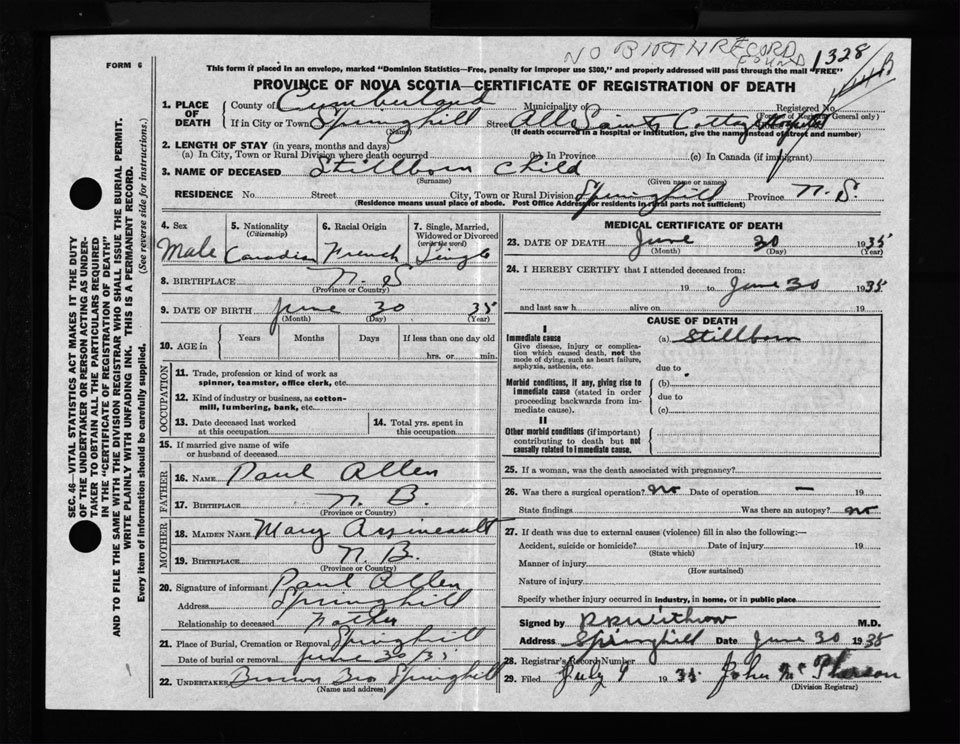 NO BIRTH RECORD
FOUND
1328
FORM 6
This form if placed in an envelope, marked "Dominion Statistics—Free, penalty for improper use $300," and properly addressed will pass through the mail "FREE"
PROVINCE OF NOVA SCOTIA—CERTIFICATE OF REGISTRATION OF DEATH
1. PLACE OF DEATH
County of Cumberland Municipality of Registered No.
(For use of Registrar General only)
If in City or Town Springhill Street All Saints Cottage Hospital
(Name) (If death occurred in a hospital or institution, give the name instead of street and number)
2. LENGTH OF STAY (in years, months and days)
(a) In City, Town or Rural Division where death occurred (b) In Province (c) In Canada (if immigrant)
3. NAME OF DECEASED Stillborn Child
(Surname) (Given name or names)
RESIDENCE No. Street City, Town or Rural Division Springhill Province N. S.
(Residence means usual place of abode. Post Office Address for residents in rural parts not sufficient)
4. Sex Male
5. Nationality (Citizenship) Canadian
6. Racial Origin French
7. Single, Married, Widowed or Divorced (write the word) Single
8. BIRTHPLACE N. S
(Province or Country)
9. DATE OF BIRTH June 30 35
(Month) (Day) (Year)
10. AGE in Years Months Days If less than one day old
hrs. or min.
OCCUPATION
11. Trade, profession or kind of work as
spinner, teamster, office clerk, etc.
12. Kind of industry or business, as cotton-
mill, lumbering, bank, etc.
13. Date deceased last worked
at this occupation
14. Total yrs. spent in
this occupation
15. If married give name of wife
or husband of deceased
FATHER
16. NAME Paul Allen
17. BIRTHPLACE N. B.
(Province or Country)
MOTHER
18. MAIDEN NAME Mary Arsineault
19. BIRTHPLACE N. B.
(Province or Country)
20. Signature of informant Paul Allen
Address Springhill
Relationship to deceased Father
21. Place of Burial, Cremation or Removal Springhill
Date of burial or removal June 30/35
22. UNDERTAKER Brown Bro Springhill
(Name and address)
MEDICAL CERTIFICATE OF DEATH
23. DATE OF DEATH June 30 1935
(Month) (Day) (Year)
24. I HEREBY CERTIFY that I attended deceased from:
19 to June 30 1935
and last saw h alive on 19
CAUSE OF DEATH
I
Immediate cause
Give disease, injury or complica-
tion which caused death, not the
mode of dying, such as heart failure,
asphyxia, asthenia, etc.
(a) Stillborn
due to
Morbid conditions, if any, giving rise to
immediate cause (stated in order
proceeding backwards from im-
mediate cause).
(b)
due to
(c)
II
Other morbid conditions (if important)
contributing to death but not
causally related to immediate cause.
25. If a woman, was the death associated with pregnancy?
26. Was there a surgical operation? no Date of operation — 19
State findings Was there an autopsy? no
27. If death was due to external causes (violence) fill in also the following:—
Accident, suicide or homicide? Date of injury 19
(State which)
Manner of injury
(How sustained)
Nature of injury
Specify whether injury occurred in industry, in home, or in public place
Signed by Withrow M.D.
Address Springhill Date June 30 1935
28. Registrar's Record Number
29. Filed July 9 1935 John McPherson
(Division Registrar)
SEC. 46—VITAL STATISTICS ACT MAKES IT THE DUTY
OF THE UNDERTAKER OR PERSON ACTING AS UNDER-
TAKER TO OBTAIN ALL THE PARTICULARS REQUIRED
IN THE "CERTIFICATE OF REGISTRATION OF DEATH"
AND TO FILE THE SAME WITH THE DIVISION REGISTRAR WHO SHALL ISSUE THE BURIAL PERMIT.
WRITE PLAINLY WITH UNFADING INK. THIS IS A PERMANENT RECORD.
Every item of information should be carefully supplied. (See reverse side for instructions.)